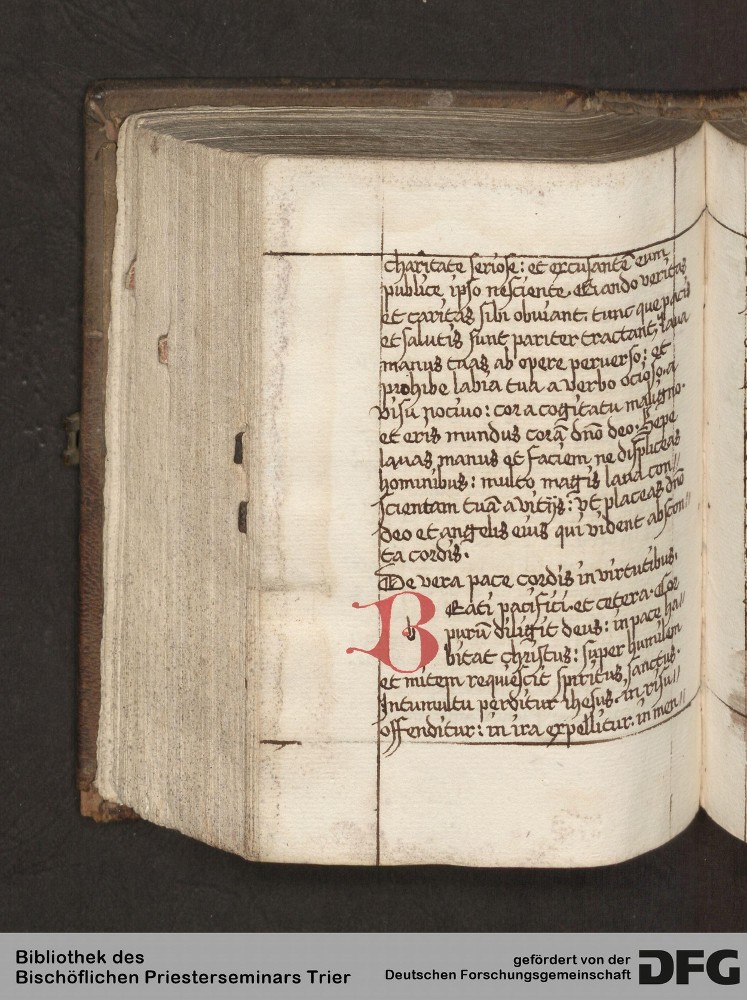 charitate seriose: et excusantē eum
publice ipso nesciente. Quando veritas
et caritas sibi obuiant. tunc que pacis
et salutis sunt pariter tractant. Laua
manus tuas ab opere peruerso: et
prohibe labia tua a verbo ocioso. a
visu nociuo: cor a cogitatu maligno.
et eris mundus corā dno deo. Sepe
lauas manus et faciem ne displiceas
hominibus: multo magis laua con//
scientam tuā a vitijs: vt placeas dno
deo et angelis eius qui vident abscon//
ta cordis.
De vera pace cordis in virtutibus.
BEati pacifici. et cetera. Cor
purū diligit deus: in pace ha//
bitat christus: super humilem
et mitem requiescit spiritus sanctus.
In tumultu perditur ihesus. in risu//
offenditur: in ira expellitur. in men//
Bibliothek des
Bischöflichen Priesterseminars Trier
gefördert von der
Deutschen Forschungsgemeinschaft
DFG